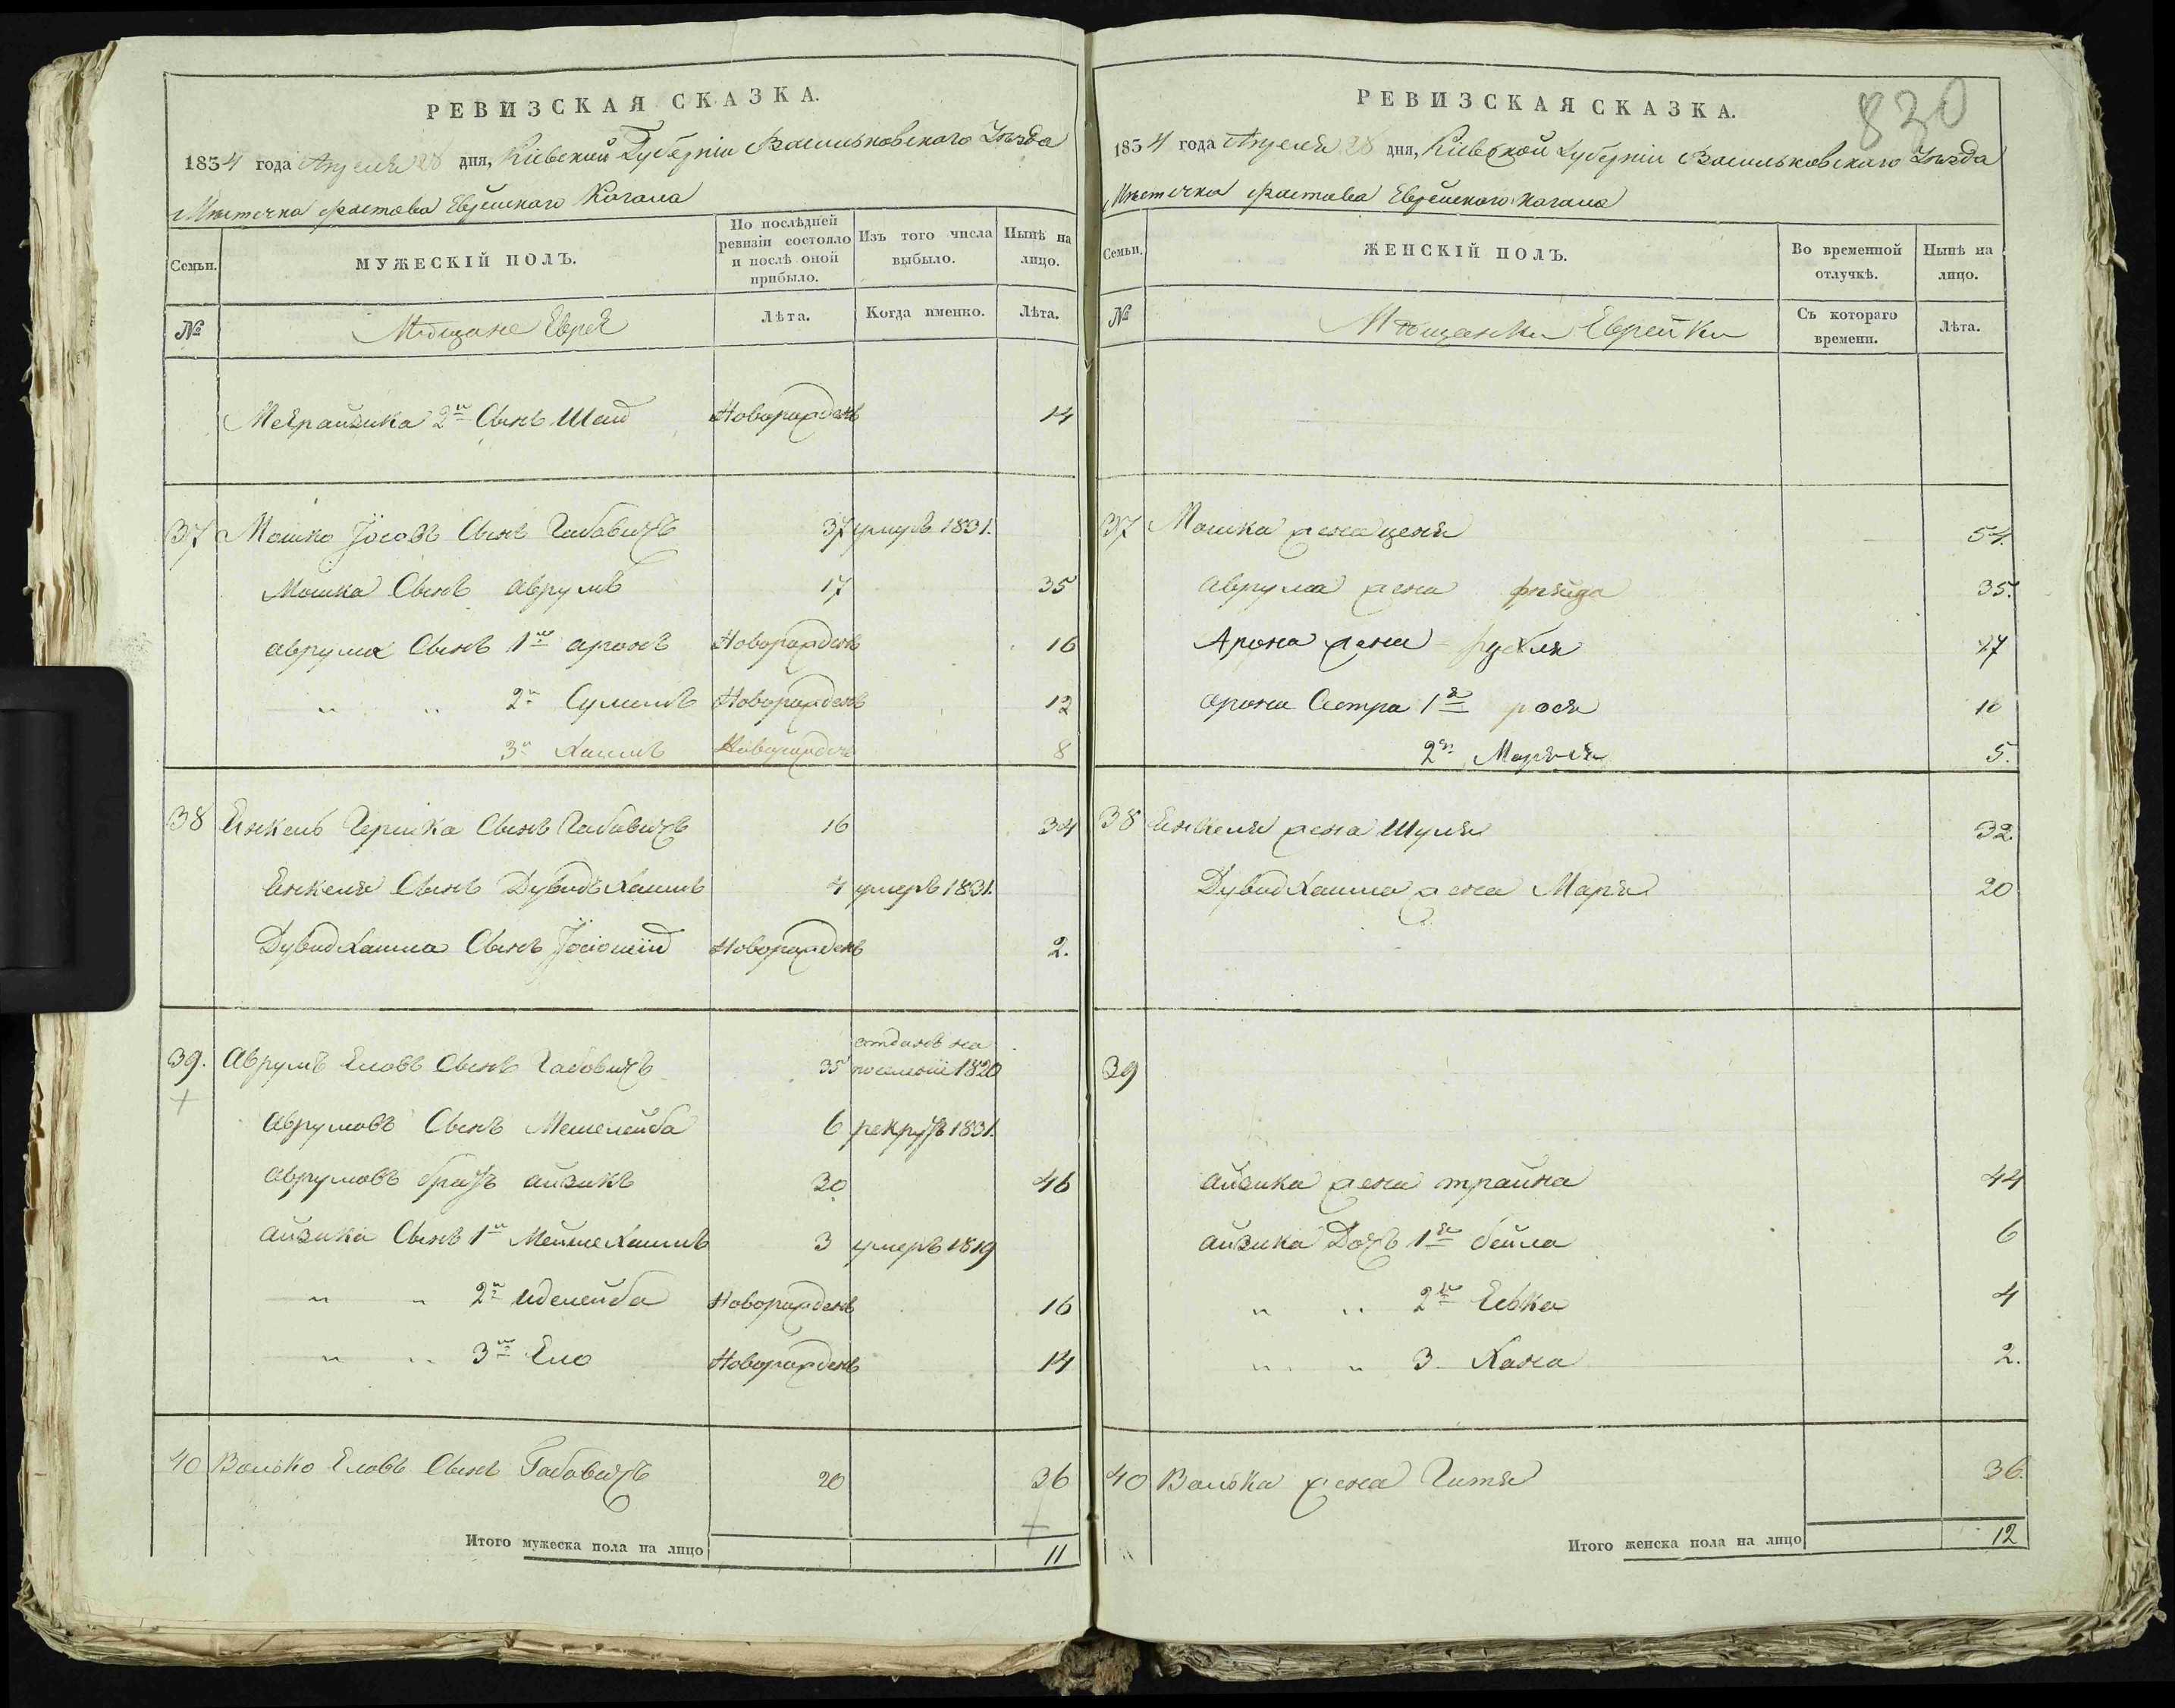 РЕВИЗСКАЯ СКАЗКА.
1834 года Апреля 28 дня, Кіевской Губерніи Васильковского Уезда
Мѣстечка Фастова Еврейского Кагала
Семьи.
МУЖЕСКІЙ ПОЛЪ.
По послѣдней ревизіи состояло и послѣ оной прибыло.
Изъ того числа выбыло.
Нынѣ на лицо.
№
Мѣщане Евреи
Лѣта.
Когда именно.
Лѣта.
2й Сынъ Новорожденъ 14
37 Мошко Іосовъ Сынъ Габовичъ 37 умеръ 1831.
Мошка Сынъ аврумъ 17 35
аврума Сынъ 1й аронъ Новорожденъ 16
" " 2й Сумшъ Новорожденъ 12
3й Хаимъ Новорожденъ 8
38 Енкель Гершка Сынъ Габовичъ 16 34
Енкеля Сынъ Дувидъ Хаимъ 4 умеръ 1831.
Дувид Хаима Сынъ Новорожденъ 2.
отданъ на
39. Аврумъ Еловъ Сынъ Габовичъ 35 поселеніе 1820
+
Аврумовъ Сынъ Мешелейба 6 рекрутъ 1831.
Аврумовъ братъ айзикъ 30 46
айзика Сынъ 1й Мейше Хаимъ 3 умеръ 1819
" " 2й иделейба Новорожденъ 16
" " 3й Ело Новорожденъ 14
40 Волько Еловъ Сынъ Габовичъ 20 36
+
Итого мужеска пола на лицо 11
830
РЕВИЗСКАЯ СКАЗКА.
1834 года Апреля 28 дня, Кіевской Губерніи Васильковского Уезда
Мѣстечка Фастова Еврейского Кагала
Семьи.
ЖЕНСКІЙ ПОЛЪ.
Во временной отлучкѣ.
Нынѣ на лицо.
№
Мѣщанки Еврейки
Съ котораго времени.
Лѣта.
37 Мошка жена ценя 54.
аврума жена фрейда 35.
Арона жена рухля 17
арона Сестра 1я рося 10
2я Марьея 5.
38 Енкеля жена Шуля 32
Дувид Хаима жена Марія 20
39
айзика жена трайна 44
айзика Дочь 1я бейла 6
" " 2я Евка 4
" " 3 Хана 2.
40 Волька жена Гитя 36.
Итого женска пола на лицо 12